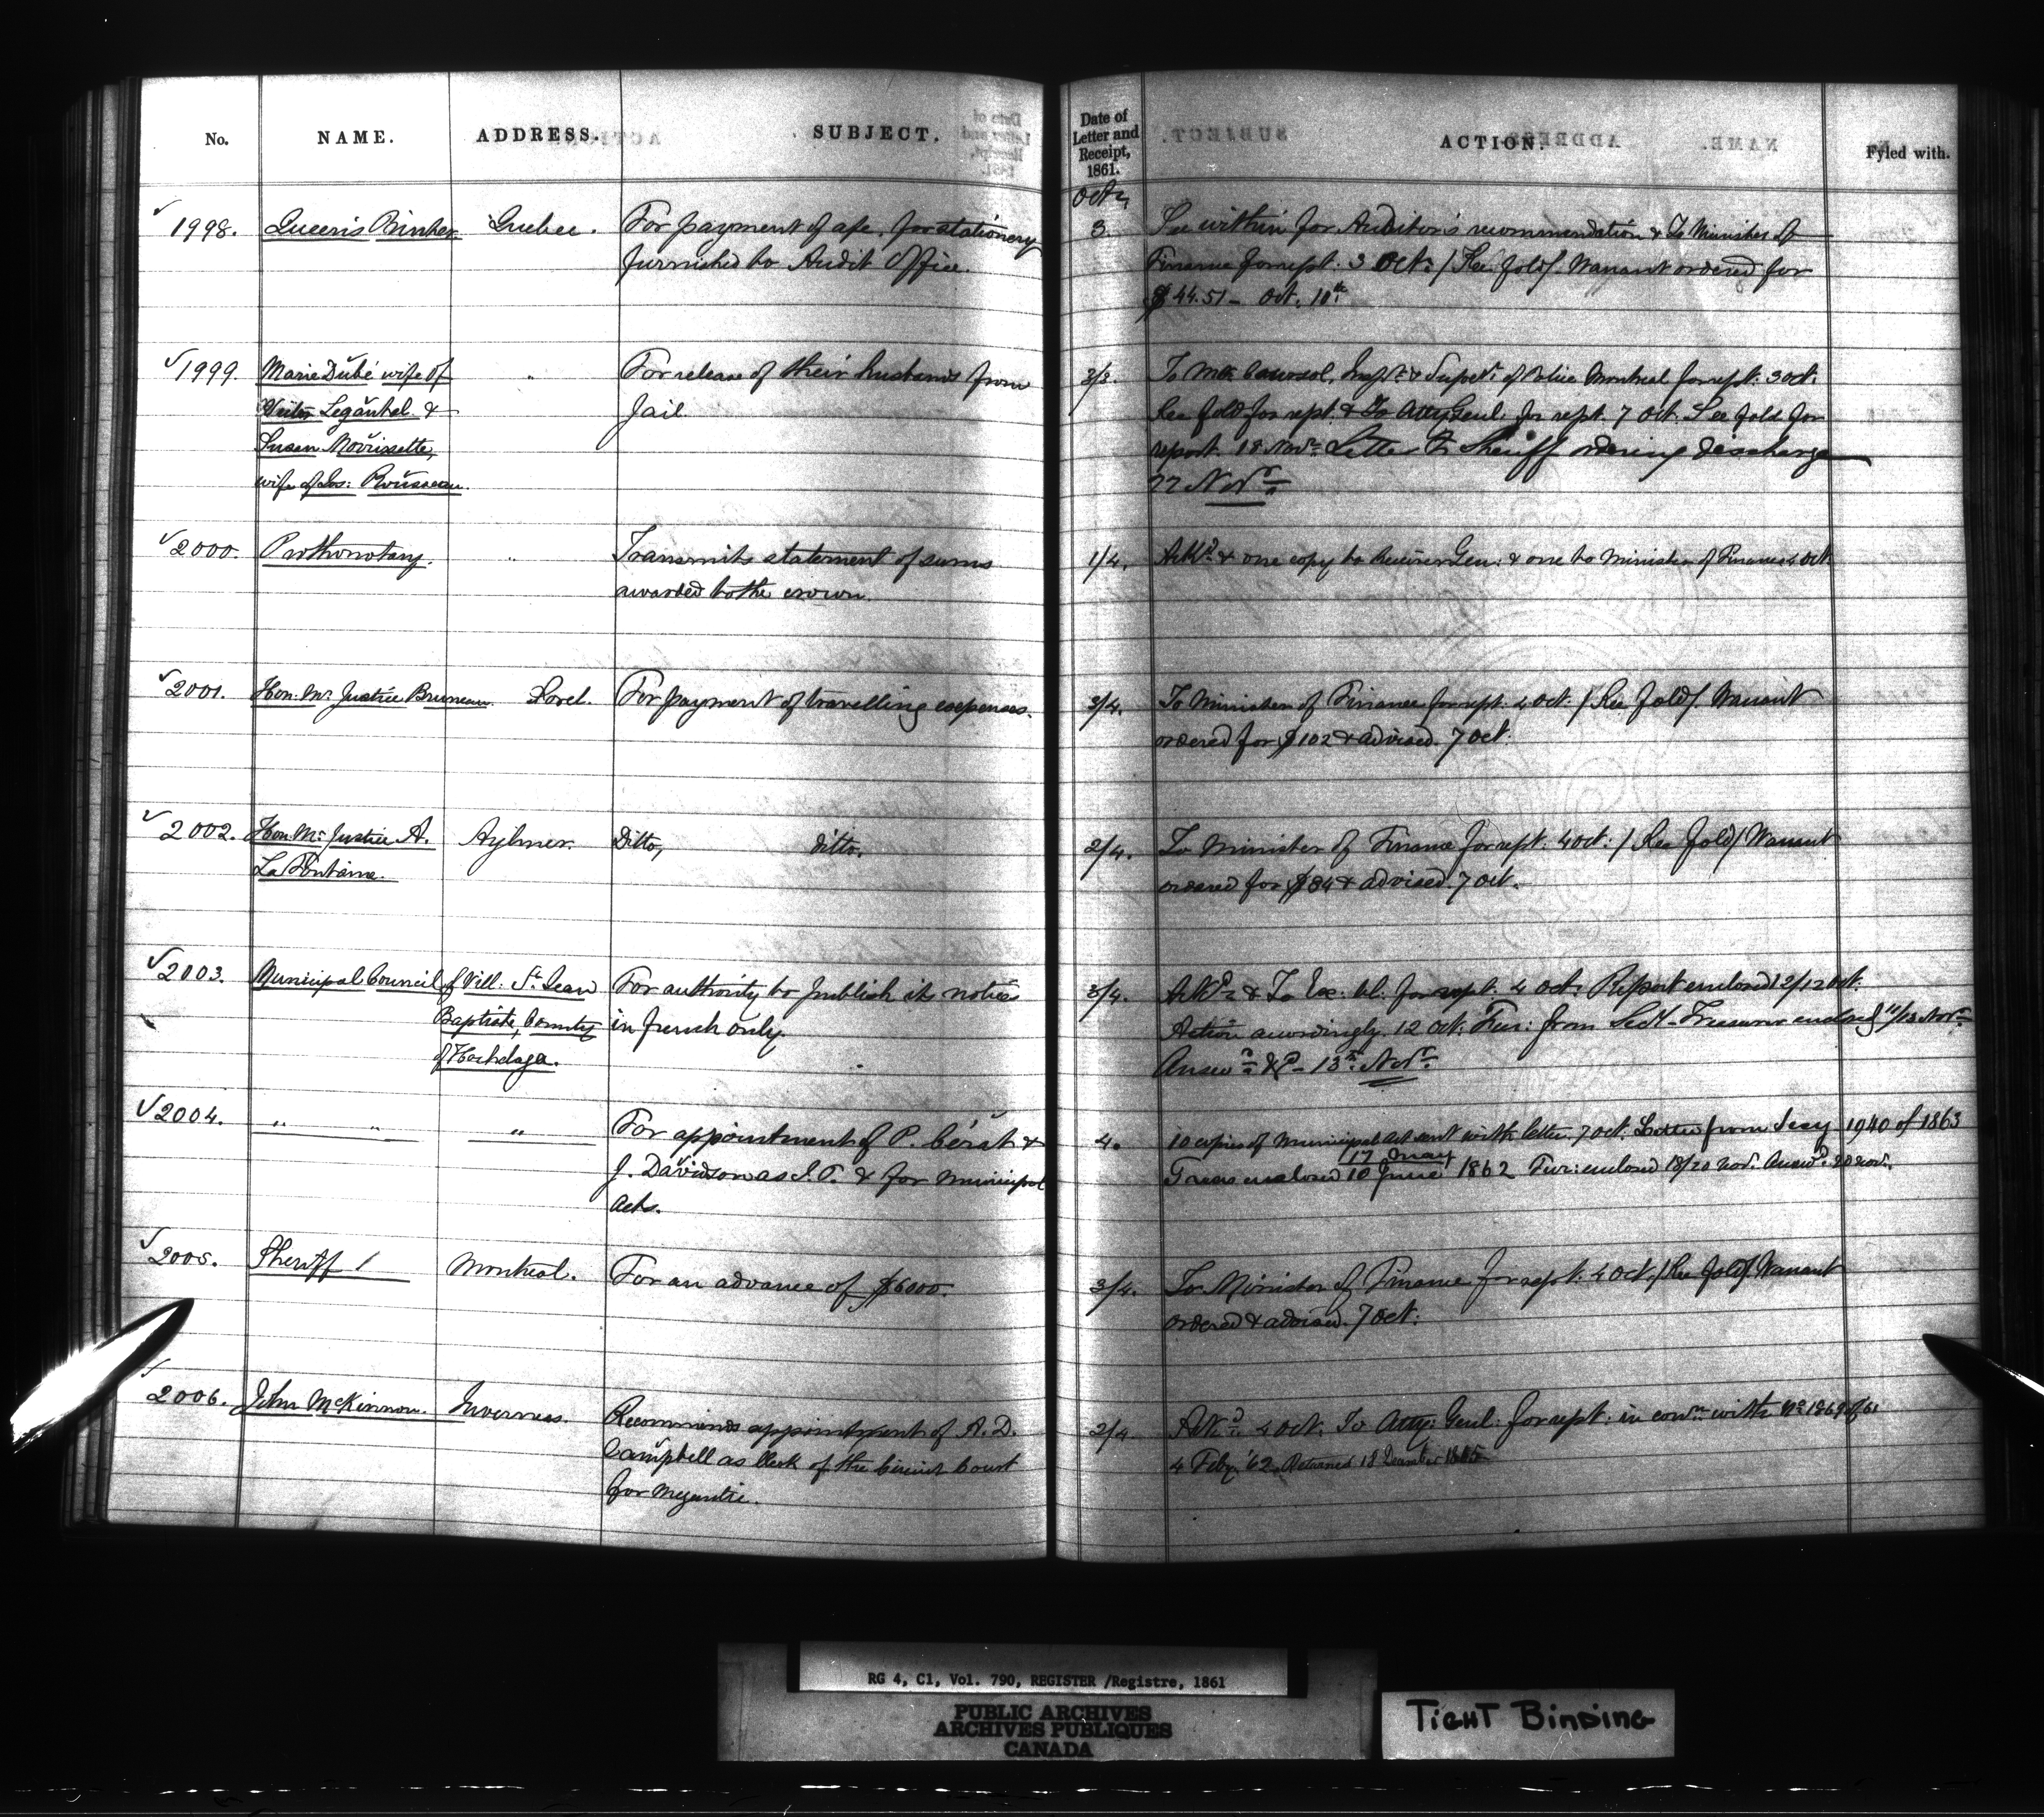 No. NAME. ADDRESS. SUBJECT. Date of Letter and Receipt, 1861. ACTION. Fyled with.
Octr
1998. Queen's Printer. Quebec. For payment of a/c. for stationery 3. See within for Auditor's recommendation & To Minister of
furnished to Audit Office. Finance for rept. 3 Oct. / See fold/. Warrant ordered for
$44.51 - Oct. 10th
1999. Marie Dubé wife of " For release of their husbands from 3/3. To Mr. Coursol, Inspr. & Supdt. of Police Montreal for rept. 3 Oct.
Legault & Jail. See fold for rept. & To Atty Genl. for rept. 7 Oct. See fold for
Susan Morrissette, report. 18 Novr. Letter to Sheriff ordering discharge
wife of Jos: Rousseau. 22 Novr.
2000. Prothonotary. " Transmits statement of sums 1/4. Ackd. & one copy to Receiver Gen: & one to Minister of Finance 4 Oct.
awarded to the crown.
2001. Hon. Mr. Justice Bruneau. Sorel. For payment of travelling expenses. 3/4. To Minister of Finance for rept. 4 Oct. / See fold/. Warrant
ordered for $102 & advised. 7 Oct.
2002. Hon. Mr. Justice A. Aylmer. Ditto, ditto. 2/4. To Minister of Finance for rept. 4 Oct: / See fold/ Warrant
La Fontaine. ordered for $84 & advised. 7 Oct.
2003. Municipal Council of Vill. St. Jean For authority to publish its notices 3/4. Ackd. & To Ex. Cl. for rept. 4 Oct. Report enclosed 12/12 Oct.
Baptiste, County in french only. Action accordingly. 12 Oct. Fur: from Secy-Treasurer enclosed 11/13 Novr.
of Hochelaga. Answd. &c - 13th Novr.
2004. " " " For appointment of P. Cérat & 4. 10 copies of Municipal Act sent with letter. 7 Oct. Letter from Secy 1940 of 1863
J. Davidson as J.P. & for Municipal Treas enclosed 17 May / 10 June 1862 Fur: enclosed 18/20 Nov. Answd. 20 Nov.
Acts.
2005. Sheriff / Montreal. For an advance of $6000. 3/4. To Minister of Finance for rept. 4 Oct. / See fold/ Warrant
ordered & advised. 7 Oct.
2006. John McKinnon. Inverness. Recommends appointment of A. D. 2/4. Ackd. 4 Oct. To Atty: Genl: for rept: in conn. with No. 1869 of 61
Campbell as Clerk of the Circuit Court 4 Feby '62. Returned 18 December 1865
for Megantic.
RG 4, C1, Vol. 790, REGISTER /Registre, 1861
PUBLIC ARCHIVES
ARCHIVES PUBLIQUES
CANADA
TIGHT BINDING